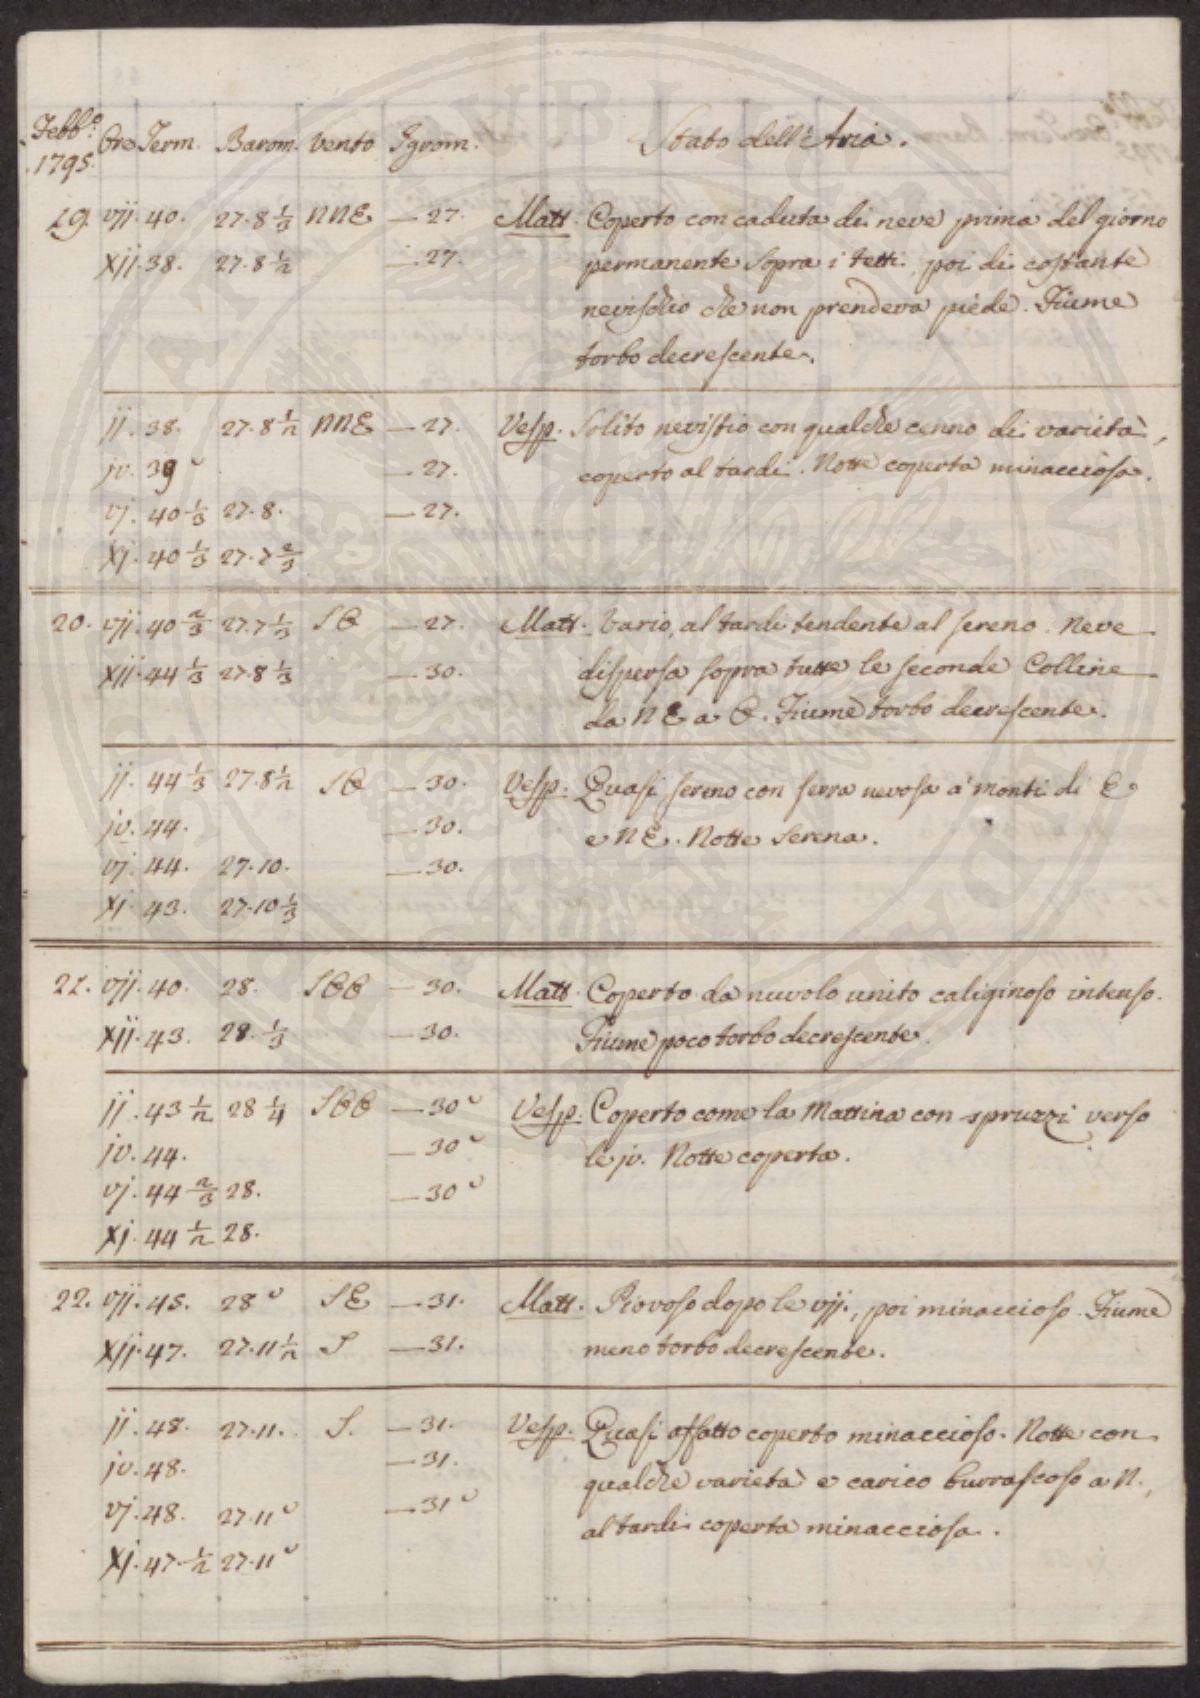 Febb.º 1795. Ore Term. Barom. Vento Igrom. Stato dell'Aria.
19. vij. 40. 27.8 1/3 NNE — 27. Matt. Coperto con caduta di neve prima del giorno
xij. 38. 27.8 1/2 — 27. permanente sopra i tetti, poi di costante
nevischio che non prendeva piede. Fiume
torbo decrescente.
ij. 38. 27.8 1/2 NNE — 27. Vesp. Solito nevistio con qualche cenno di varietà,
iv. 39 — 27. coperto al tardi. Notte coperta minacciosa.
vj. 40 1/3 27.8. — 27.
xj. 40 1/3 27.7 2/3
20. vij. 40 2/3 27.7 1/3 SO — 27. Matt. Vario, al tardi tendente al sereno. Neve
xij. 44 1/3 27.8 1/3 — 30. dispersa sopra tutte le seconde Colline
da NE a O. Fiume torbo decrescente.
ij. 44 1/3 27.8 1/2 SO — 30. Vesp. Quasi sereno con serra nevosa a' monti di E
iv. 44. — 30. e NE. Notte serena.
vj. 44. 27.10. — 30.
xj. 43. 27.10 1/3
21. vij. 40. 28. SOO — 30. Matt. Coperto da nuvolo unito caliginoso intenso.
xij. 43. 28. 1/3 — 30. Fiume poco torbo decrescente.
ij. 43 1/2 28 1/4 SOO — 30 ᵕ Vesp. Coperto come la Mattina con spruzzi verso
iv. 44. — 30 ᵕ le jv. Notte coperta.
vj. 44 2/3 28. — 30 ᵕ
xj. 44 1/2 28.
22. vij. 45. 28 ᵕ SE — 31. Matt. Piovoso dopo le vij., poi minaccioso. Fiume
xij. 47. 27.11 1/2 S — 31. meno torbo decrescente.
ij. 48. 27.11. S. — 31. Vesp. Quasi affatto coperto minaccioso. Notte con
iv. 48. — 31. qualche varietà e carico burrascoso a N.,
vj. 48. 27.11 ᵕ — 31 ᵕ al tardi coperta minacciosa.
xj. 47 1/2 27.11 ᵕ